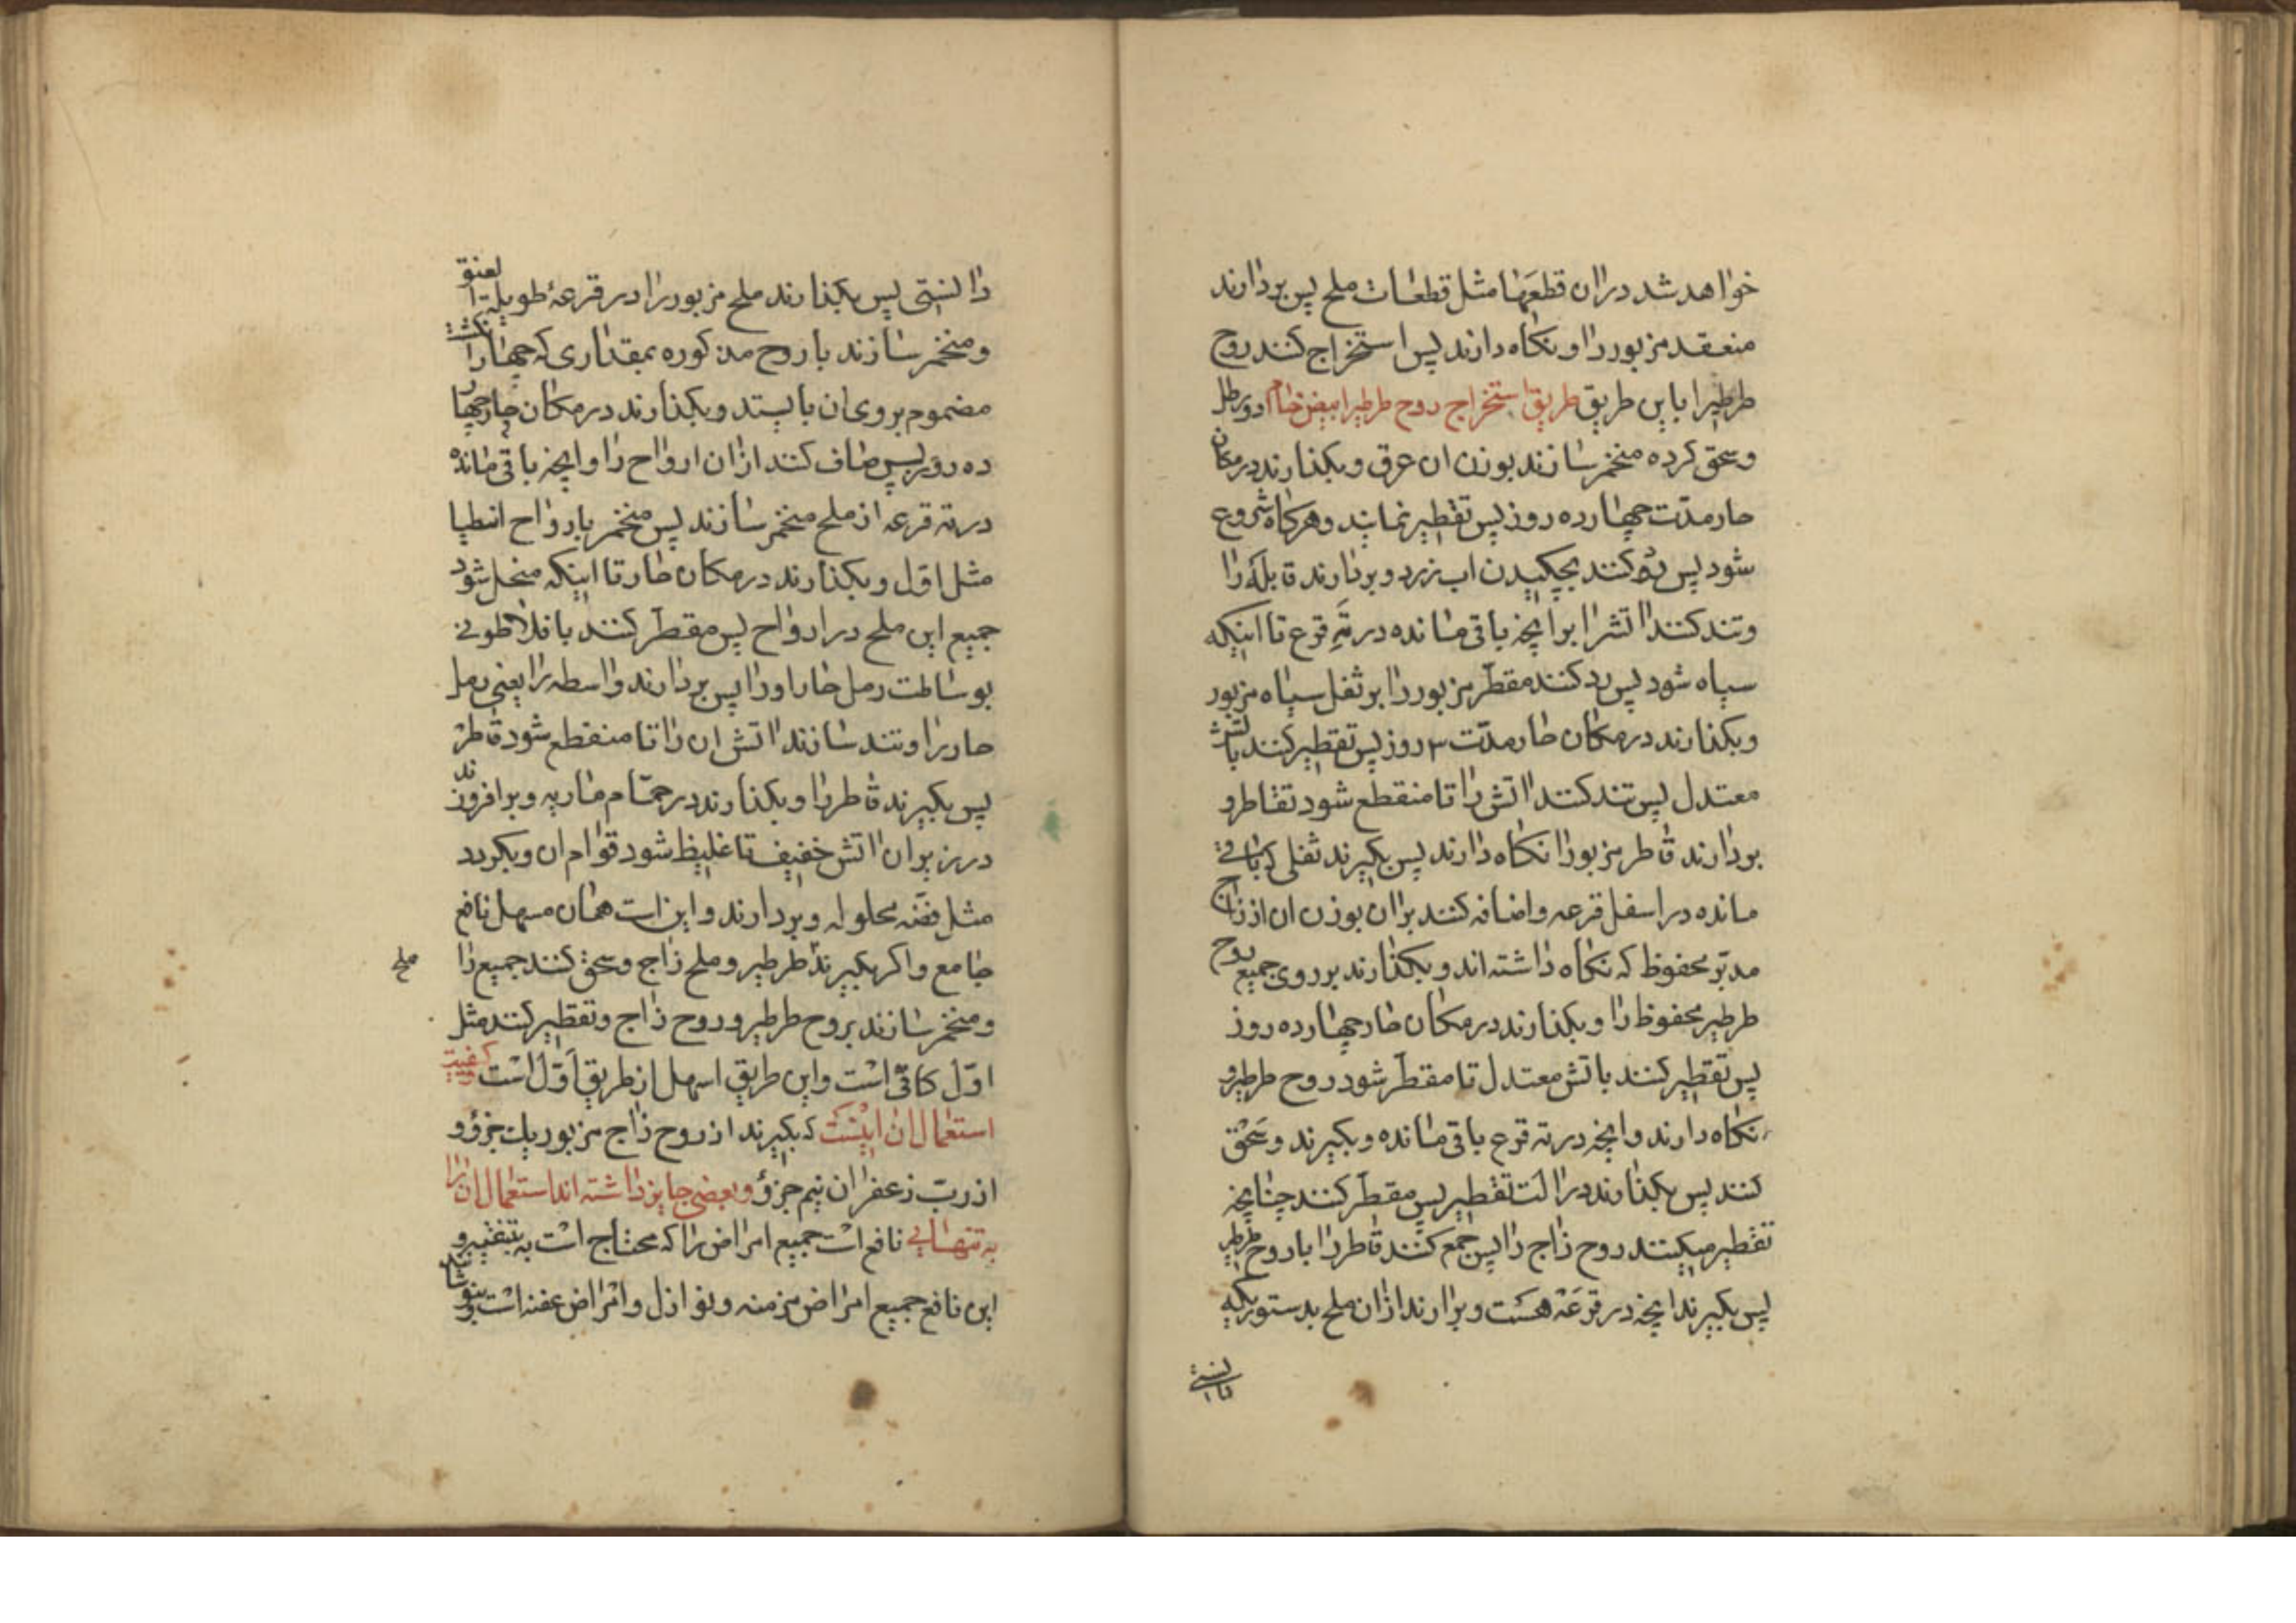 خواهد شد دران قطعها مثل قطعات ملح پس بردارند
منعقد مزبور را و نکاه دارند پس استخراج کنند روح
طرطیرا باین طریق طریق استخراج روح طرطیرابیض خام دو رطل
وسحق کرده متخمر سازند بوزن ان عرق و بکذارند در مکان
حار مدّت چهارده روز پس تقطیر نمایند وهرکاه شروع
شود پس کنند بچکیدن اب زرد و بردارند قابله را
وتند کنند اتشرا برانچه باقی مانده در ته قرع تا اینکه
سیاه شود پس رد کنند مقطّر مزبور را بر ثفل سیاه مزبور
وبکذارند در مکان حار مدّت ۳ روز پس تقطیر کنند باتش
معتدل پس تند کنند اتش را تا منقطع شود تقاطر و
بردارند قاطر مزبور را نکاه دارند پس بکیرند ثفلی که باقی
مانده در اسفل قرعه واضافه کنند بران بوزن ان از زاج
مدبّر محفوظ که نکاه داشته اند و بکذارند بر روی جمیع روح
طرطیر محفوظ را و بکذارند در مکان حار چهارده روز
پس تقطیر کنند باتش معتدل تا مقطّر شود روح طرطیر و
نکاه دارند وانچه در ته قرع باقی مانده و بکیرند وسحق
کنند پس بکذارند در الت تقطیر پس مقطّر کنند چنانچه
تقطیر میکنند روح زاج را پس جمع کنند قاطر را با روح طرطیر
پس بکیرند انچه در قرعه هست و برارند ازان ملح بدستوریکه
دانستی
دانستی پس بکذارند ملح مزبور را در قرعهٔ طویلة العنق
ومتخمر سازند با روح مذکوره بمقداری که چهار انکشت
مضموم بر روی ان بایستد و بکذارند در مکان حار چهار
ده روز پس صاف کنند ازان ارواح را وانچه باقی مانده
در ته قرعه از ملح متخمر سازند پس متخمر بارواح انطیا
مثل اوّل و بکذارند در مکان حار تا اینکه منحل شود
جمیع این ملح در ارواح پس مقطّر کنند بافلاطونی
بوساطت رمل حار اورا پس بردارند واسطه را یعنی رمل
حار را و تند سازند اتش ان را تا منقطع شود قاطر
پس بکیرند قاطر را و بکذارند در حمّام ماریه و برافروزند
در زیر ان اتش خفیف تا غلیظ شود قوام ان و بکردد
مثل فضّه محلوله و بردارند و این است همان مسهل نافع
جامع واکر بکیرند طرطیر و ملح زاج وسحق کنند جمیع را
ملح
ومتخمر سازند بروح طرطیر و روح زاج وتقطیر کنند مثل
اوّل کافی است واین طریق اسهل از طریق اوّل است و کیفیت
استعمال ان اینست که بکیرند از روح زاج مزبور یك جزؤ و
از ربّ زعفران نیم جزؤ و بعضی جایز داشته اند استعمال ان را
به تنهایی نافع است جمیع امراض را که محتاج است به تبغیر و
این نافع جمیع امراض مزمنه و نوازل وامراض عفنه است و بنوشانند